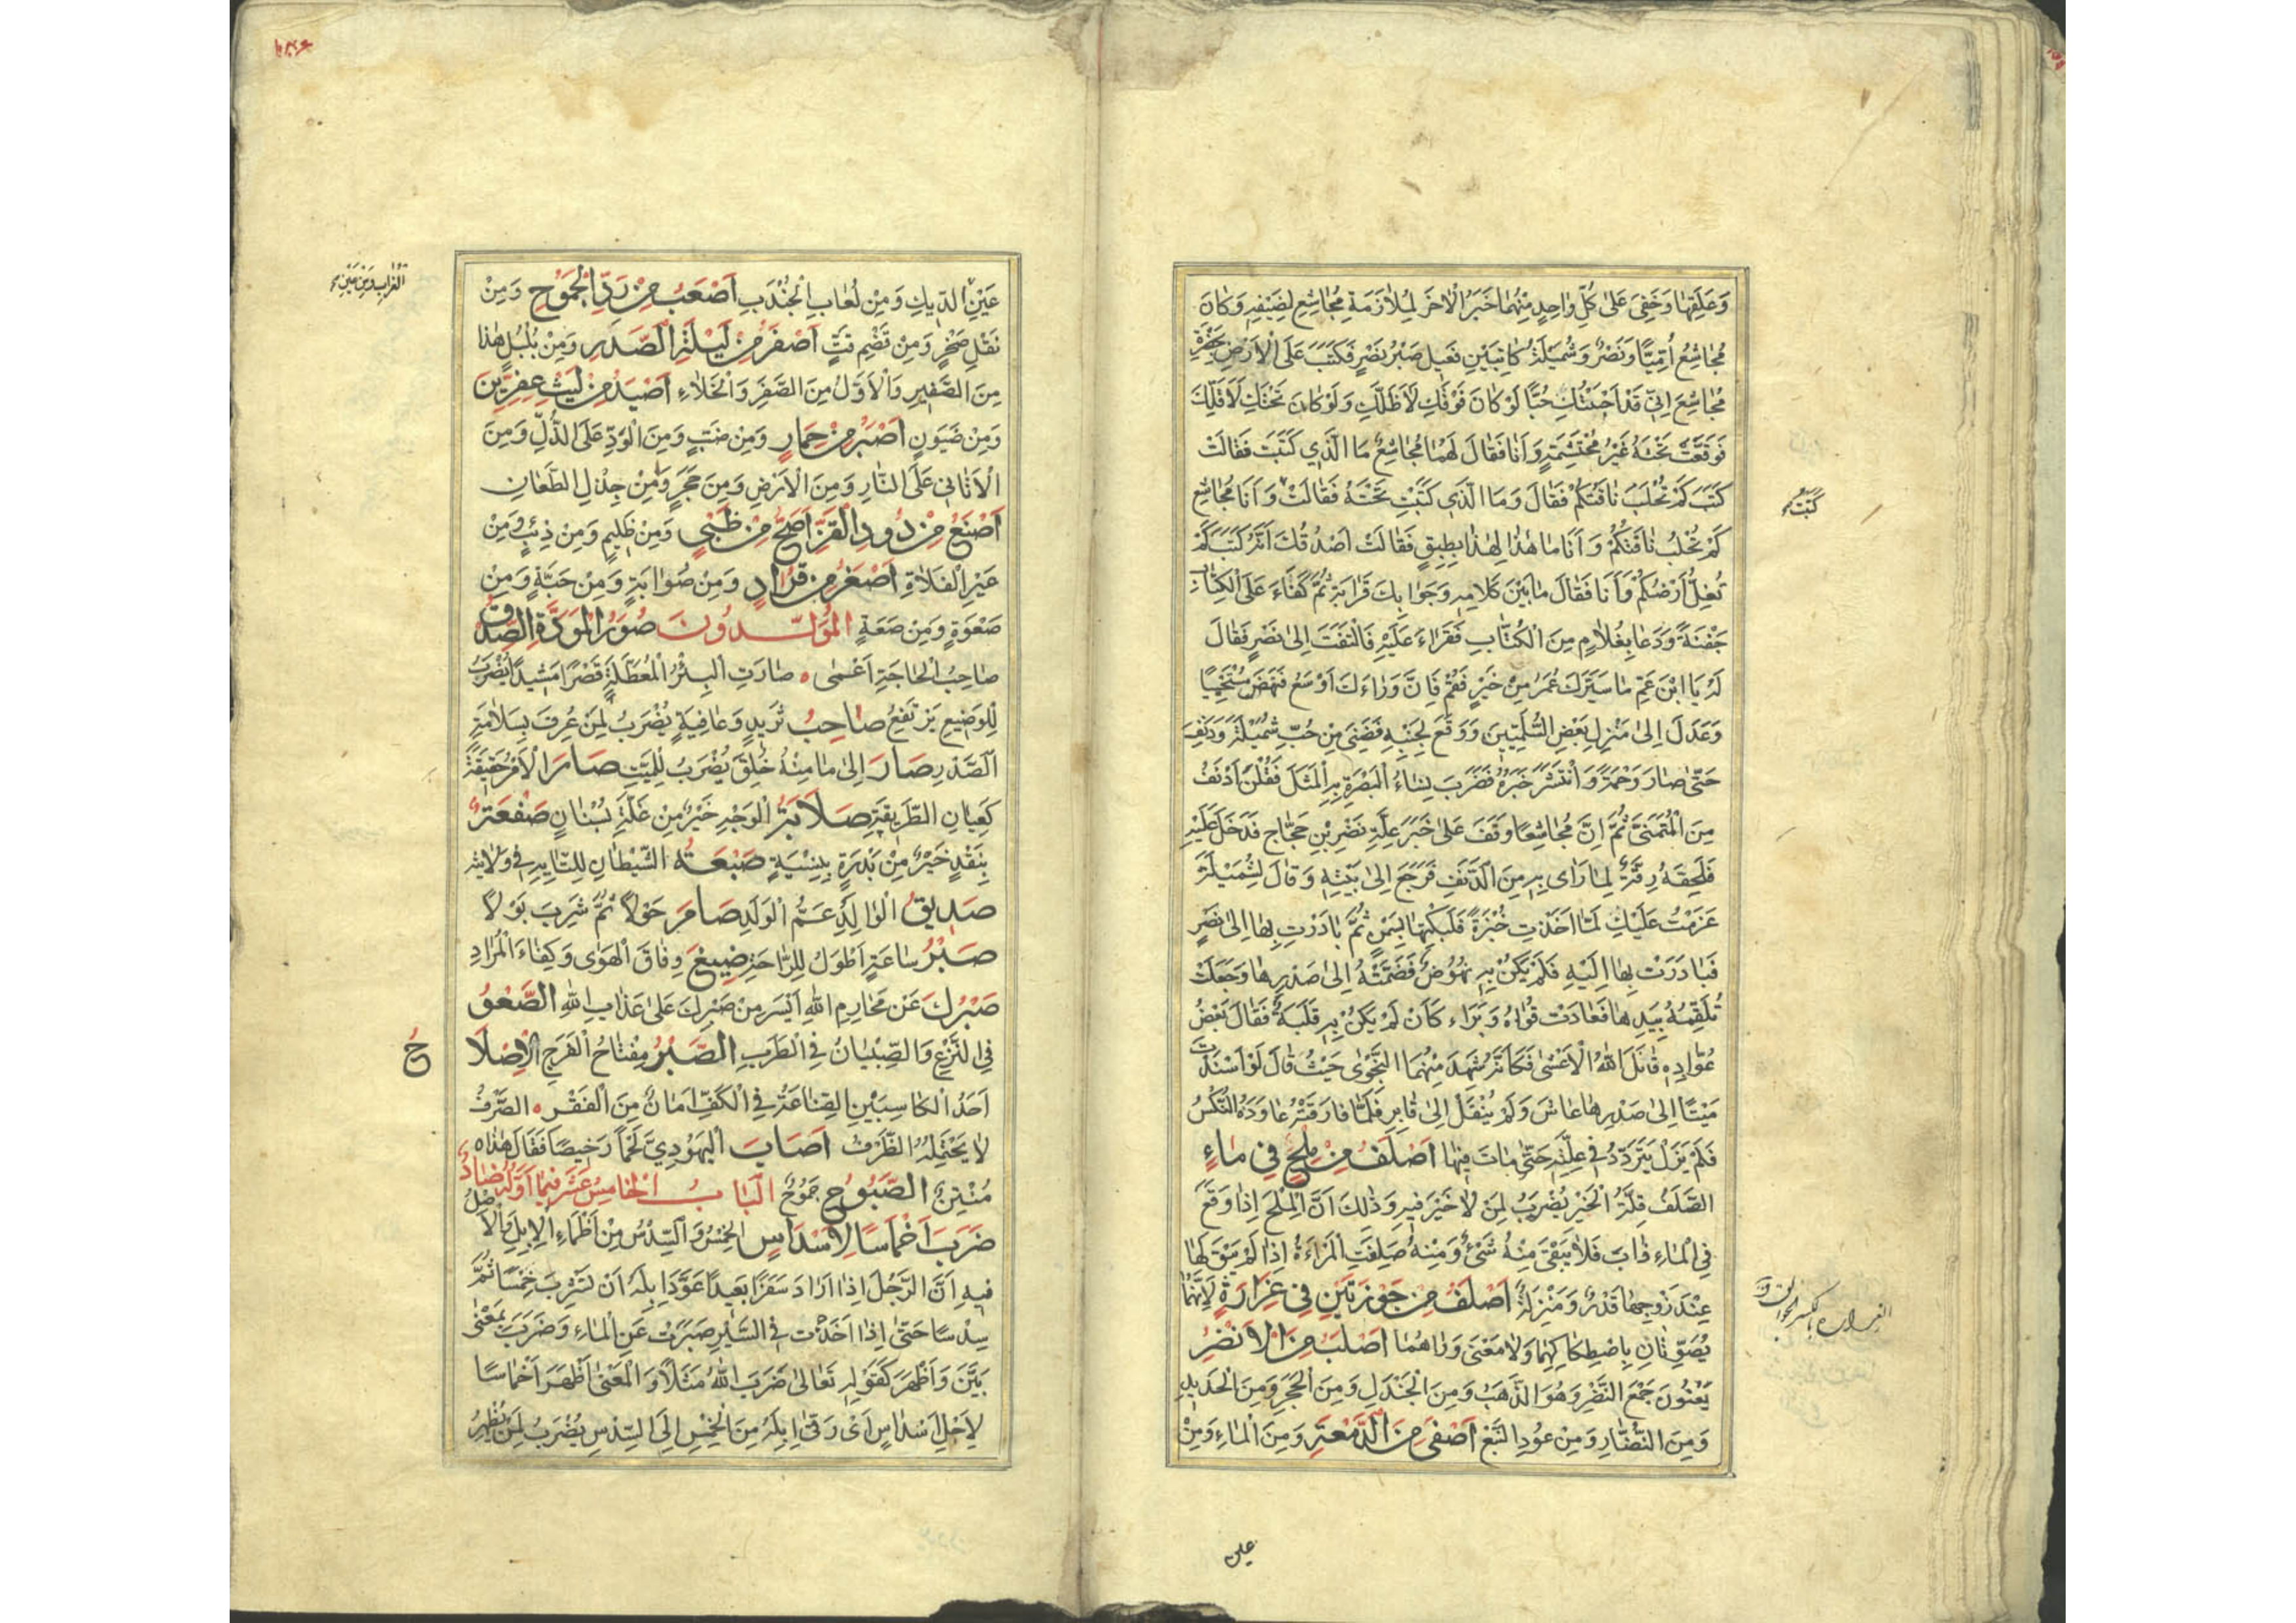 وَعَلِقَهَا وَخَفِيَ عَلىٰ كُلِّ وَاحِدٍ مِنْهُمَا خَبَرُ الْاٰخَرِ لِمُلَازَمَةِ مُجَاشِعٍ لِضَيْفِهِ وَكَانَ
مُجَاشِعُ اُمِّيًّا وَنَصْرٌ وَشُمَيْلَةُ كَاتِبَيْنِ فَعِيلَ صَبْرُ نَصْرٍ فَكَتَبَ عَلَى الْاَرْضِ بِحَضْرَةِ
مُجَاشِعَ اِنِّي قَدْ اَحْبَبْتُكِ حُبًّا لَوْ كَانَ فَوْقَكِ لَاَظَلَّكِ وَلَوْ كَانَ تَحْتَكِ لَاَقَلَّكِ
فَوَقَّعَتْ تَحْتَهُ غَيْرَ مُحْتَشِمَةٍ وَاَنَا فَقَالَ لَهُمَا مُجَاشِعُ مَا الَّذِي كَتَبَتَ فَقَالَتْ
كَتَبَ كَمْ تُحْلَبُ نَاقَتُكُمْ فَقَالَ وَمَا الَّذِي كَتَبْتِ تَحْتَهُ فَقَالَتْ وَاَنَا مُجَاشِع
كَمْ تُحْلَبُ نَاقَتُكُمْ وَاَنَا مَا هٰذَا لِهٰذَا بِطِبْقٍ فَقَالَتْ اَصْدُقُكَ اَنَّهُ كَتَبَ كَمْ
تُغِلُّ اَرْضُكُمْ وَاَنَا فَقَالَ مَا بَيْنَ كَلَامِهِ وَجَوَابِكِ قَرَابَةٌ ثُمَّ كَفَاءَ عَلَى الْكِتَابَةِ
جَفْنَةً وَدَعَا بِغُلَامٍ مِنَ الْكُتَّابِ فَقَرَاءَ عَلَيْهِ فَالْتَفَتَ اِلىٰ نَصْرٍ فَقَالَ
لَهُ يَا ابْنَ عَمِّ مَا سَيَّرَكَ عُمَرُ مِنْ خَيْرٍ فَقُمْ فَاِنَّ وَرَاءَكَ اَوْسَعُ فَنَهَضَ مُسْتَحْيِيًا
وَعَدَلَ اِلىٰ مَنْزِلِ بَعْضِ السُّلَمِيِّينَ وَوَقَعَ لِجَنْبِهِ فَضَنِيَ مِنْ حُبِّ شُمَيْلَةَ وَدَنِفَ
حَتّىٰ صَارَ رَحْمَةً وَانْتَشَرَ خَبَرُهُ فَضَرَبَ نِسَاءُ الْبَصْرَةِ بِهِ الْمَثَلَ فَقُلْنَ اَدْنَفُ
مِنَ الْمُتَمَنَّى ثُمَّ اِنَّ مُجَاشِعًا وَقَفَ عَلىٰ خَبَرِ عِلَّةِ نَصْرِ بْنِ حَجَّاجٍ فَدَخَلَ عَلَيْهِ
فَلَحِقَهُ رِقَّةٌ لِمَا رَاٰى بِهِ مِنَ الدَّنَفِ فَرَجَعَ اِلىٰ بَيْتِهِ وَقَالَ لِشُمَيْلَةَ
عَزَمْتُ عَلَيْكِ لَمَّا اَخَذْتِ خُبْزَةً فَلَبَكْتِهَا بِسَمْنٍ ثُمَّ بَادَرْتِ بِهَا اِلىٰ نَصْرٍ
فَبَادَرَتْ بِهَا اِلَيْهِ فَلَمْ يَكُنْ بِهِ نُهُوضٌ فَضَمَّتْهُ اِلىٰ صَدْرِهَا وَجَعَلَتْ
تُلَقِّمُهُ بِيَدِهَا فَعَادَتْ قُوَاهُ وَبَرَاءَ كَاَنْ لَمْ يَكُنْ بِهِ قَلَبَةٌ فَقَالَ بَعْضُ
عُوَّادِهِ قَاتَلَ اللهُ الْاَعْشٰى فَكَاَنَّهُ شَهِدَ مِنْهُمَا النَّجْوٰى حَيْثُ قَالَ لَوْ اَسْنَدَتْ
مَيْتًا اِلىٰ صَدْرِهَا عَاشَ وَلَمْ يُنْقَلْ اِلىٰ قَابِرِ فَلَمَّا فَارَقَتْهُ عَاوَدَهُ النُّكْسُ
فَلَمْ يَزَلْ يَتَرَدَّدُ فِي عِلَّتِهِ حَتّىٰ مَاتَ فِيهَا اَصْلَفُ مِنْ مِلْحٍ فِي مَاءٍ
الصَّلَفُ قِلَّةُ الْخَيْرِ يُضْرَبُ لِمَنْ لَا خَيْرَ فِيهِ وَذٰلِكَ اَنَّ الْمِلْحَ اِذَا وَقَعَ
فِي الْمَاءِ ذَابَ فَلَا يَبْقٰى مِنْهُ شَيْءٌ وَمِنْهُ صَلِفَتِ الْمَرْاَةُ اِذَا لَمْ يَبْقَ لَهَا
عِنْدَ زَوْجِهَا قَدْرٌ وَمَنْزِلَةٌ اَصْلَفُ مِنْ جَوْزَتَيْنِ فِي غِرَارَةٍ لِاَنَّهُمَا
يُصَوِّتَانِ بِاصْطِكَاكِهِمَا وَلَا مَعْنٰى وَرَاهُمَا اَصْلَبُ مِنَ الْاَنْضُرِ
يَعْنُونَ جَمْعَ النَّضْرِ وَهُوَ الذَّهَبُ وَمِنَ الْجَنْدَلِ وَمِنَ الْحَجَرِ وَمِنَ الْحَدِيدِ
وَمِنَ النُّضَارِ وَمِنْ عُودِ النَّبْعِ اَصْفٰى مِنَ الدَّمْعَةِ وَمِنَ الْمَاءِ وَمِنْ
كَتَبْتِ
عين
عَيْنِ الدِّيكِ وَمِنْ لُعَابِ الْجُنْدَبِ اَصْعَبُ مِنْ رَدِّ الْجَمُوحِ وَمِنْ
نَقْلِ صَخْرٍ وَمِنْ قَضْمِ قَتٍّ اَصْفَرُ مِنْ لَيْلَةِ الصَّدَرِ وَمِنْ بُلْبُلٍ هٰذَا
مِنَ الصَّفِيرِ وَالْاَوَّلُ مِنَ الصَّفَرِ وَالْخَلَاءِ اَصْيَدُ مِنْ لَيْثِ عِفِرِّينَ
وَمِنْ ضَيْوَنٍ اَصْبَرُ مِنْ حِمَارٍ وَمِنْ ضَبٍّ وَمِنَ الْوَدِّ عَلَى الذُّلِّ وَمِنَ
الْاَثَافِي عَلَى النَّارِ وَمِنَ الْاَرْضِ وَمِنَ حَجَرٍ وَمِنْ جِذْلِ الطِّعَانِ
اَصْنَعُ مِنْ دُودِ الْقَزِّ اَصَحُّ مِنْ ظَبْيٍ وَمِنْ ظَلِيمٍ وَمِنْ ذِئْبٍ وَمِنْ
عَيْرِ الْفَلَاةِ اَصْغَرُ مِنْ قُرَادٍ وَمِنْ صُوَابَةٍ وَمِنْ حَبَّةٍ وَمِنْ
صَعْوَةٍ وَمِنْ صَعَةٍ الْمُوَلَّدُونَ صُورَةُ الْمَوَدَّةِ الصِّدْقُ
صَاحِبُ الْحَاجَةِ اَعْمٰى صَارَتِ الْبِئْرُ الْمُعَطَّلَةُ قَصْرًا مَشِيدًا يُضْرَبُ
لِلْوَضِيعِ يَرْتَفِعُ صَاحِبُ ثَرِيدٍ وَعَافِيَةٍ يُضْرَبُ لِمَنْ عُرِفَ بِسَلَامَةِ
الصَّدْرِ صَارَ اِلىٰ مَا مِنْهُ خُلِقَ يُضْرَبُ لِلْمَيِّتِ صَارَ الْاَمْرُ حَقِيقَةً
كَعِيَانِ الطَّرِيقَةِ صَلَابَةُ الْوَجْهِ خَيْرٌ مِنْ غَلَّةِ بُسْتَانٍ صَفْعَةٌ
بِنَقْدٍ خَيْرٌ مِنْ بَدْرَةٍ بِنَسِيَّةٍ صَبَعَهُ الشَّيْطَانِ لِلتَّايِهِ فِي وِلَايَتِهِ
صَدِيقُ الْوَالِدِ عَمُّ الْوَلَدِ صَامَ حَوْلًا ثُمَّ شَرِبَ بَوْلًا
صَبْرُ سَاعَةٍ اَطْوَلُ لِلرَّاحَةِ صِيغَ وِفَاقَ الْهَوٰى وَكِفَاءَ الْمُرَادِ
صَبْرُكَ عَنْ مَحَارِمِ اللهِ اَيْسَرُ مِنْ صَبْرِكَ عَلىٰ عَذَابِ اللهِ الصَّعْوُ
فِي النَّزْعِ وَالصِّبْيَانُ فِي الطَّرَبِ الصَّبْرُ مِفْتَاحُ الْفَرَجِ الْاِصْلَا
ح
اَحَدُ الْكَاسِبَيْنِ الصِّنَاعَةُ فِي الْكَفِّ اَمَانٌ مِنَ الْفَقْرِ الصَّرْفُ
لَا يَحْتَمِلُهُ الظَّرْفُ اَصَابَ الْيَهُودِيُّ لَحْمًا رَخِيصًا فَقَالَ هٰذَا
مُنْتِنٌ الصَّبُوحُ جَمُوحٌ الْبَابُ الْخَامِسُ عَشَرَ فِيمَا اَوَّلُهُ ضَادٌ
ضَرَبَ اَخْمَاسًا لِاَسْدَاسٍ الْخِمْسُ وَالسِّدْسُ مِنْ اَظْمَاءِ الْاِبِلِ وَالْاَصْلُ
فِيهِ اَنَّ الرَّجُلَ اِذَا اَرَادَ سَفَرًا بَعِيدًا عَوَّدَ اِبِلَهُ اَنْ تَشْرَبَ خِمْسًا ثُمَّ
سِدْسًا حَتّىٰ اِذَا اَخَذَتْ فِي السَّيْرِ صَبَرَتْ عَنِ الْمَاءِ وَضَرَبَ بِمَعْنٰى
بَيَّنَ وَاَظْهَرَ كَقَوْلِهِ تَعَالىٰ ضَرَبَ اللهُ مَثَلًا وَالْمَعْنٰى اَظْهَرَ اَخْمَاسًا
لِاَجْلِ اَسْدَاسٍ اَىْ رَقّٰى اِبِلَهُ مِنَ الْخِمْسِ اِلَى السِّدْسِ يُضْرَبُ لِمَنْ يُظْهِرُ